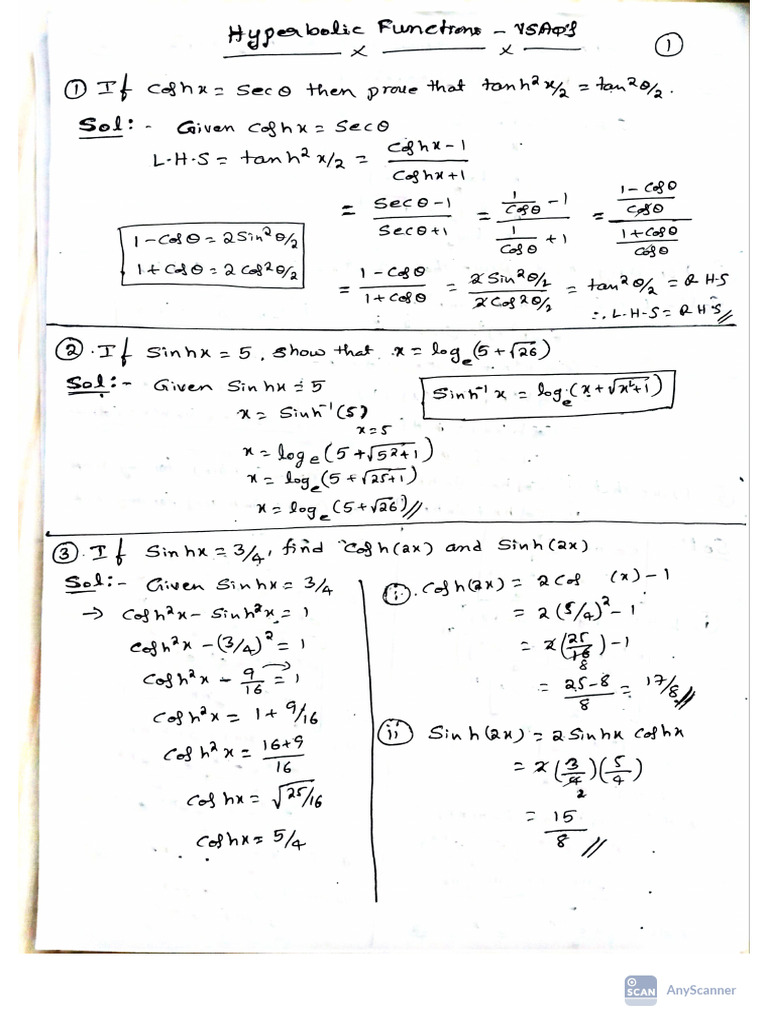 Hyperbolic Functions - VSAQ'S
①
① If Coshx = Secθ then prove that tanh²x/2 = tan²θ/2.
Sol:- Given Coshx = Secθ
L.H.S = tanh² x/2 = (Coshx - 1)/(Coshx + 1)
= (Secθ - 1)/(Secθ + 1) = (1/Cosθ - 1)/(1/Cosθ + 1) = ((1 - Cosθ)/Cosθ)/((1 + Cosθ)/Cosθ)
1 - Cosθ = 2Sin²θ/2
1 + Cosθ = 2Cos²θ/2
= (1 - Cosθ)/(1 + Cosθ) = (2Sin²θ/2)/(2Cos²θ/2) = tan²θ/2 = R.H.S
∴ L.H.S = R.H.S //
② . If Sinhx = 5, show that x = logₑ(5 + √26)
Sol:- Given Sinhx = 5
Sinh⁻¹ x = logₑ(x + √x²+1)
x = Sinh⁻¹(5)
x = 5
x = logₑ(5 + √5²+1)
x = logₑ(5 + √25+1)
x = logₑ(5 + √26) //
③ . If Sinhx = 3/4, find Cosh(2x) and Sinh(2x)
Sol:- Given Sinhx = 3/4
→ Cosh²x - Sinh²x = 1
Cosh²x - (3/4)² = 1
Cosh²x - 9/16 = 1
Cosh²x = 1 + 9/16
Cosh²x = (16+9)/16
Coshx = √25/16
Coshx = 5/4
ⓘ. Cosh(2x) = 2Cos (x) - 1
= 2(5/4)² - 1
= 2(25/16) - 1
8
= (25-8)/8 = 17/8 //
ⓘⓘ Sinh(2x) = 2Sinhx Coshx
= 2(3/4)(5/4)
2
= 15/8 //
SCAN AnyScanner